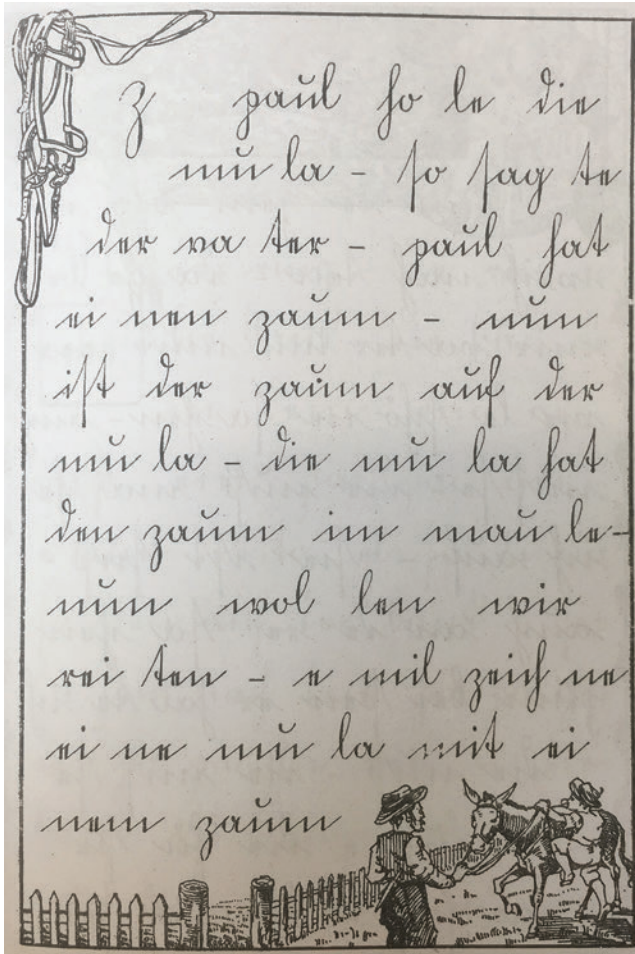 z paul ho le die
mu la - so sag te
der va ter - paul hat
ei nen zaum - nun
ist der zaum auf der
mu la - die mu la hat
den zaum im mau le-
nun wol len wir
rei ten - e mil zeich ne
ei ne mu la mit ei
nem zaum